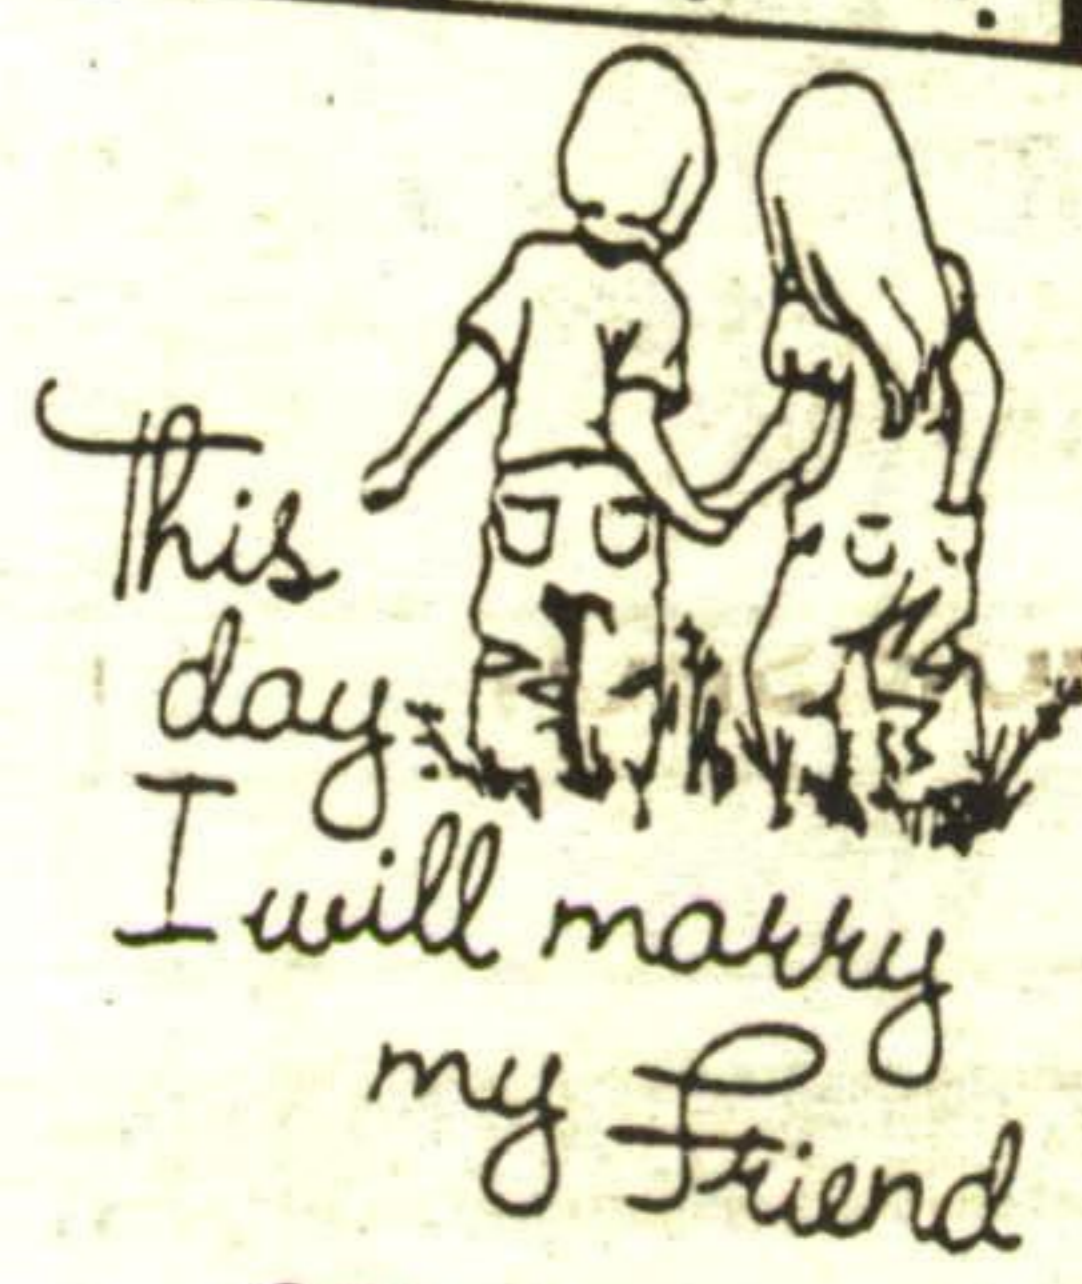 This
day
I will marry
my Friend